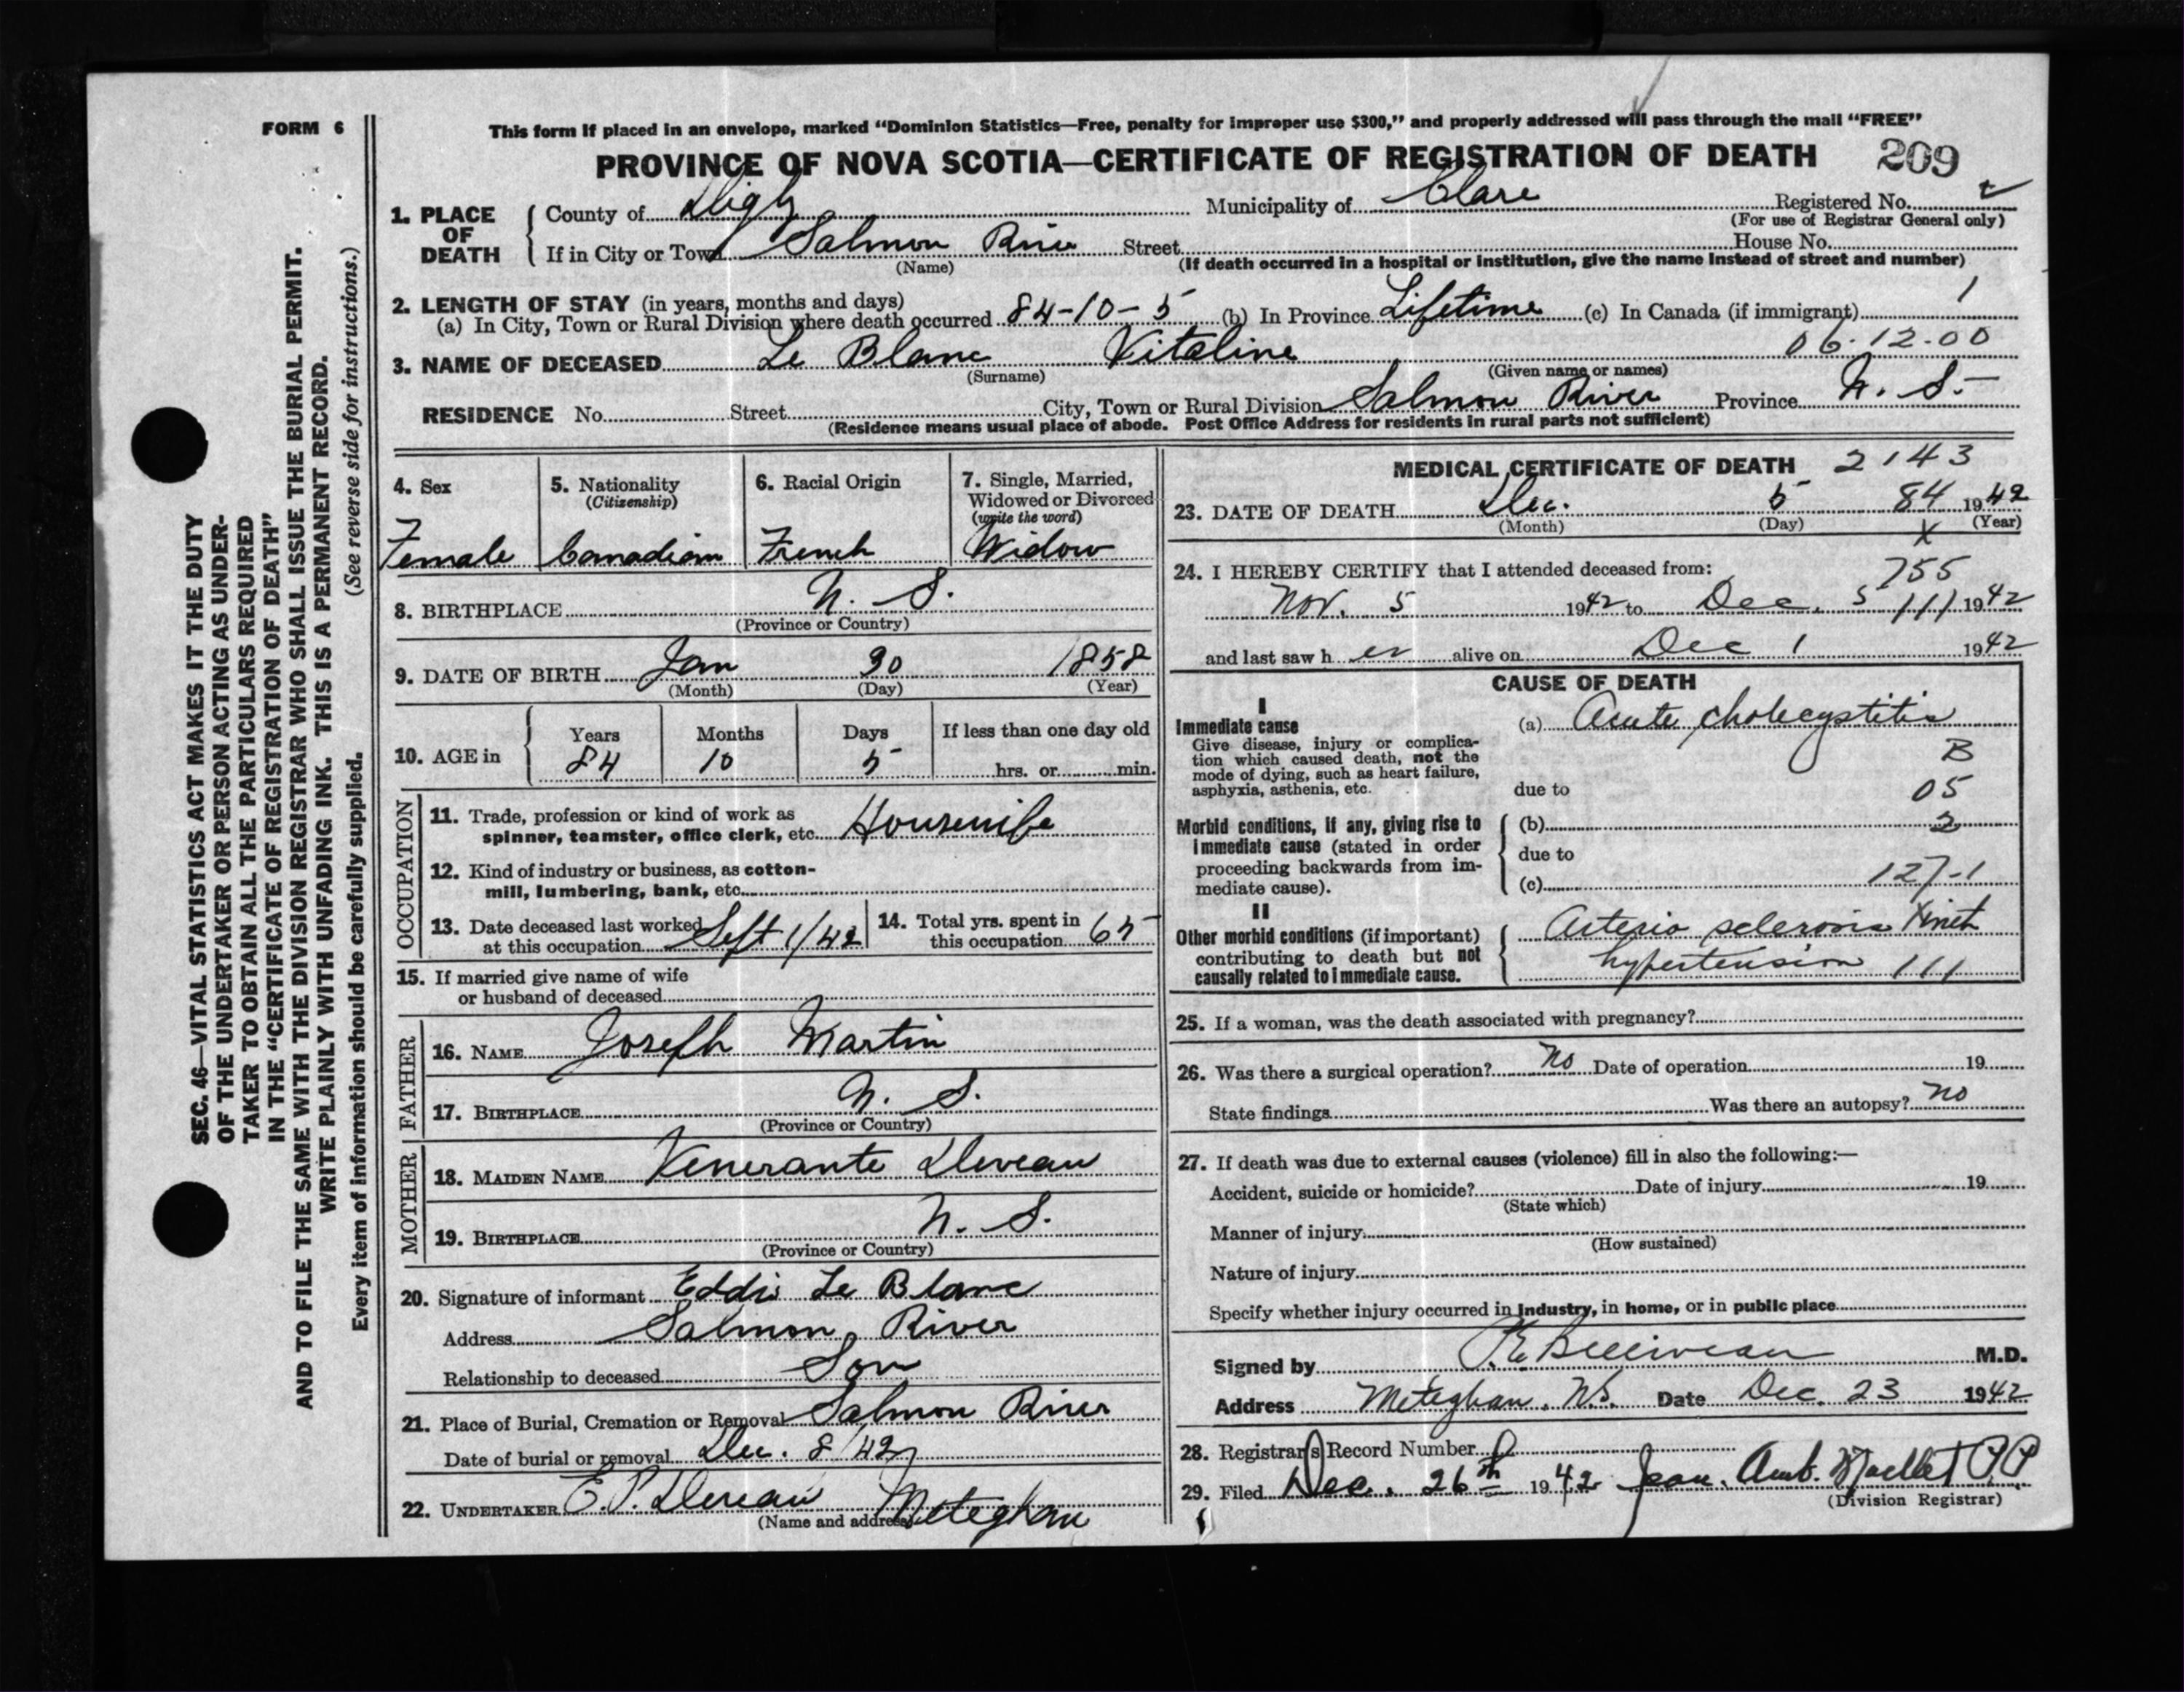 FORM 6
This form if placed in an envelope, marked "Dominion Statistics—Free, penalty for improper use $300," and properly addressed will pass through the mail "FREE"
PROVINCE OF NOVA SCOTIA—CERTIFICATE OF REGISTRATION OF DEATH 209
1. PLACE OF DEATH
County of Digby Municipality of Clare Registered No.
(For use of Registrar General only)
If in City or Town Salmon River Street House No.
(Name) (If death occurred in a hospital or institution, give the name instead of street and number)
2. LENGTH OF STAY (in years, months and days)
(a) In City, Town or Rural Division where death occurred 84-10-5 (b) In Province Lifetime (c) In Canada (if immigrant) 1
3. NAME OF DECEASED Le Blanc Vitaline 06.12.00
(Surname) (Given name or names)
RESIDENCE No. Street City, Town or Rural Division Salmon River Province N. S.
(Residence means usual place of abode. Post Office Address for residents in rural parts not sufficient)
4. Sex
Female
5. Nationality
(Citizenship)
Canadian
6. Racial Origin
French
7. Single, Married,
Widowed or Divorced
(write the word)
Widow
8. BIRTHPLACE N. S.
(Province or Country)
9. DATE OF BIRTH Jan 30 1858
(Month) (Day) (Year)
10. AGE in
Years Months Days If less than one day old
84 10 5 hrs. or min.
OCCUPATION
11. Trade, profession or kind of work as
spinner, teamster, office clerk, etc. Housewife
12. Kind of industry or business, as cotton-
mill, lumbering, bank, etc.
13. Date deceased last worked
at this occupation Sept 1/42
14. Total yrs. spent in
this occupation 65
15. If married give name of wife
or husband of deceased
FATHER
16. NAME Joseph Martin
17. BIRTHPLACE N. S.
(Province or Country)
MOTHER
18. MAIDEN NAME Venerante Deveau
19. BIRTHPLACE N. S.
(Province or Country)
20. Signature of informant Eddie Le Blanc
Address Salmon River
Relationship to deceased Son
21. Place of Burial, Cremation or Removal Salmon River
Date of burial or removal Dec. 8/42
22. UNDERTAKER E. P. Deveau Meteghan
(Name and address)
MEDICAL CERTIFICATE OF DEATH 2143
23. DATE OF DEATH Dec. 5 84 1942
(Month) (Day) X (Year)
24. I HEREBY CERTIFY that I attended deceased from: 755
Nov. 5 1942 to Dec. 5 111 1942
and last saw h er alive on Dec 1 1942
CAUSE OF DEATH
I
Immediate cause
Give disease, injury or complica-
tion which caused death, not the
mode of dying, such as heart failure,
asphyxia, asthenia, etc.
(a) Acute cholecystitis
B
due to 05
Morbid conditions, if any, giving rise to
immediate cause (stated in order
proceeding backwards from im-
mediate cause).
(b) 2
due to
(c) 127-1
II
Other morbid conditions (if important)
contributing to death but not
causally related to immediate cause.
Arterio sclerosis with
hypertension 111
25. If a woman, was the death associated with pregnancy?
26. Was there a surgical operation? No Date of operation 19
State findings Was there an autopsy? no
27. If death was due to external causes (violence) fill in also the following:—
Accident, suicide or homicide? Date of injury 19
(State which)
Manner of injury
(How sustained)
Nature of injury
Specify whether injury occurred in industry, in home, or in public place
Signed by P. E. Belliveau M.D.
Address Meteghan, N.S. Date Dec. 23 1942
28. Registrar's Record Number
29. Filed Dec. 26th 1942 Jean. Amb.
(Division Registrar)
SEC. 46—VITAL STATISTICS ACT MAKES IT THE DUTY
OF THE UNDERTAKER OR PERSON ACTING AS UNDER-
TAKER TO OBTAIN ALL THE PARTICULARS REQUIRED
IN THE "CERTIFICATE OF REGISTRATION OF DEATH"
AND TO FILE THE SAME WITH THE DIVISION REGISTRAR WHO SHALL ISSUE THE BURIAL PERMIT.
WRITE PLAINLY WITH UNFADING INK. THIS IS A PERMANENT RECORD.
Every item of information should be carefully supplied. (See reverse side for instructions.)